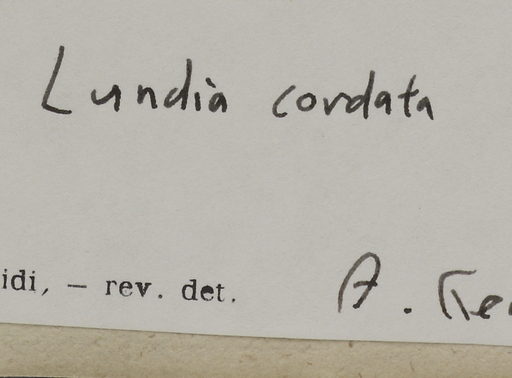 Lundia cordata
idi, — rev. det. A.